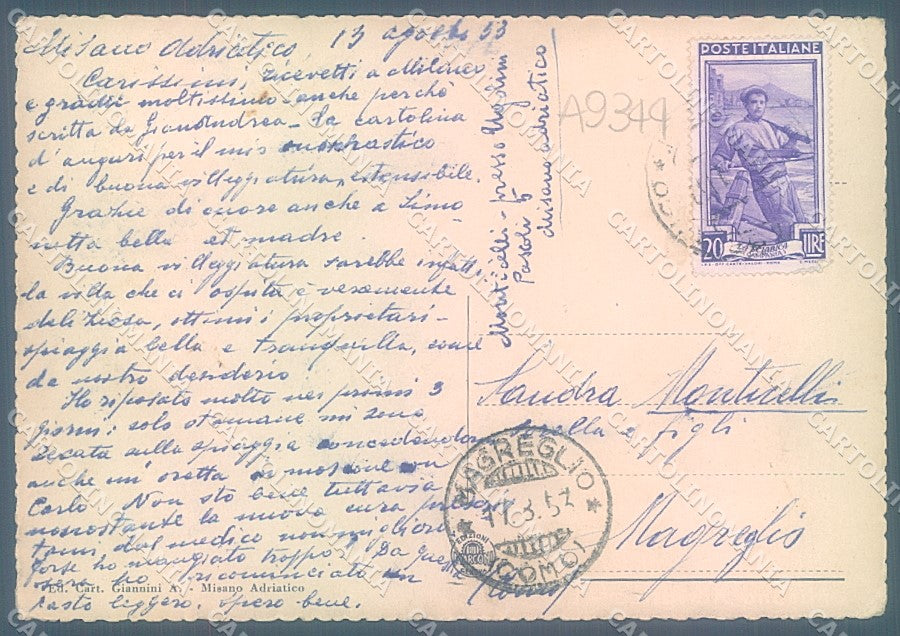 Misano Adriatico, 13 agosto 53
Carissimi, ricevetti a Milano
e gradii moltissimo anche perchè
scritta da Gianandrea - la cartolina
d'auguri per il mio onomastico
e di buona villeggiatura, ostensibile.
Grazie di cuore anche a Simo
netta bella et madre.
Buona villeggiatura sarebbe infatti,
la villa che ci ospita è veramente
deliziosa, ottimi i proprietari -
spiaggia bella e tranquilla, come
da nostro desiderio
Ho riposato molto nei primi 3
giorni: solo stamane mi sono
recata sulla spiaggia concedendomi
anche un'oretta di moscone con
Carlo. Non sto bene tuttavia
nonostante la nuova cura
dal medico non miglioro
forse ho mangiato troppo. Da questa
sera ho incominciato un
pasto leggero. spero bene.
Ed. Cart. Giannini A. - Misano Adriatico
Monticelli - presso Ugolini
Pascoli 5
Misano Adriatico
A9344
POSTE ITALIANE
20 LIRE
Sandra Monticelli
e figli
Magreglio
(Como)
MAGREGLIO
53
(COMO)
CARTOLINOMANIA